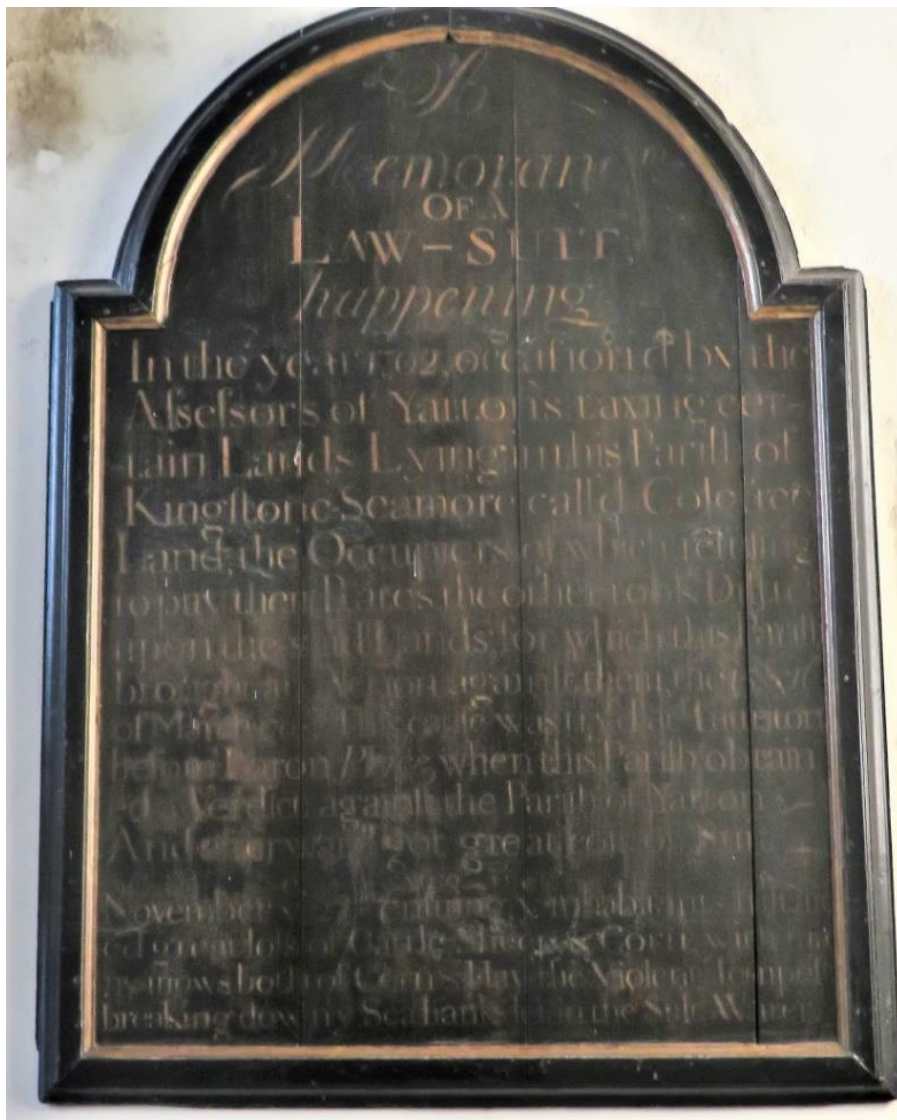 A
Memorand
OF A
LAW-SUIT
happening
In the year 1702, occasion'd by the
Aſseſsors of Yatton's taxing cer-
tain Lands Lying in this Pariſh of
Kingſtone-Seamore call'd Cole
Land, the Occupiers of which refuſing
to pay their Rates, the other took
upon the said Lands for which this Pariſh
brought an Action againſt them, the
of March cauſe was try'd at Taunton
before Baron Price, when this Pariſh obtain
ed a Verdict againſt the Pariſh of Yatton
And afterward got great Coſt of Suit
November ye 27 enſuing, ye inhabitants
ed great loſs of Cattle, Sheep & Corn, with
mows both of Corn & Hay the Violent Tempeſt
breaking down ye Sea banks let in the Salt Water